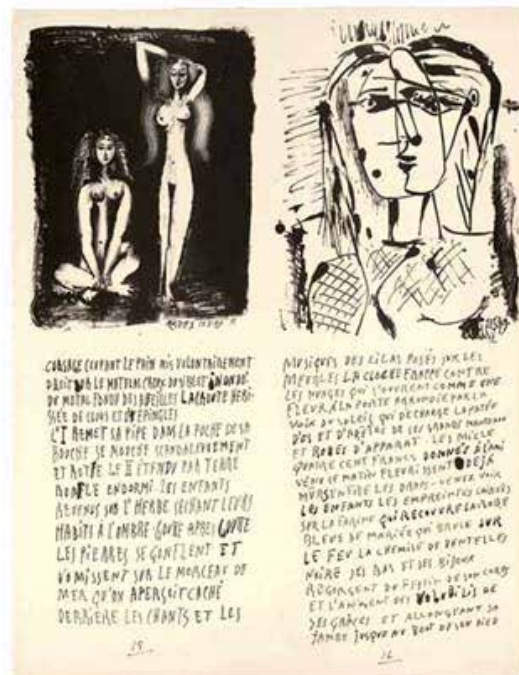 CORSAGE COUPANT LE PAIN MIS VOLONTAIREMENT
DROIT SUR LE MATELAS
DU METAL FONDU DES ABEILLES LA CROUTE HERI-
SSÉE DE CLOUS ET D'EPINGLES
L'I REMET SA PIPE DANS LA POCHE DE SA
BOUCHE SE MOUCHE SCANDALEUSEMENT
ET ROTE LE II ÉTENDU PAR TERRE
RONFLE ENDORMI LES ENFANTS
SUR L'HERBE SÉCHANT LEURS
HABITS À L'OMBRE GOUTE APRES GOUTE
LES PIERRES SE GONFLENT ET
VOMISSENT SUR LE MORCEAU DE
MER QU'ON APERSOIT CACHÉ
DERRIÈRE LES CHANTS ET LES
15
MUSIQUES DES LILAS POSÉS SUR LES
MEUBLES LA CLOCHE FRAPPE CONTRE
LES NUAGES QUI S'OUVRENT COMME UNE
FLEUR À LA PORTE ARRONDIE PAR LA
VOIX DU SOLEIL QUI DECHARGE LA PATÉE
D'OS ET D'ARÊTES DE SES GRANDS MANTEAUX
ET ROBES D'APPARAT. LES MILLE
QUATRE CENT FRANCS DONNÉS À L'AMI
VENU CE MATIN FLEURISSENT DEJA
ENTRE LES DRAPS - VENEZ VOIR
LES ENFANTS LES EMPREINTES
SUR LA FARINE QUI RECOUVRE LA ROBE
BLEUE DE MARIÉE QUI BRULE SUR
LE FEU LA CHEMISE DE DENTELLES
NOIRE SES BAS ET SES BIJOUX
REGORGENT DU FESTIN DE SON CORPS
ET L'ANIMENT DES VOLUBILIS DE
SES GRACES ET ALLONGEANT SA
JAMBE JUSQU'AU BOUT DE SON PIED
16